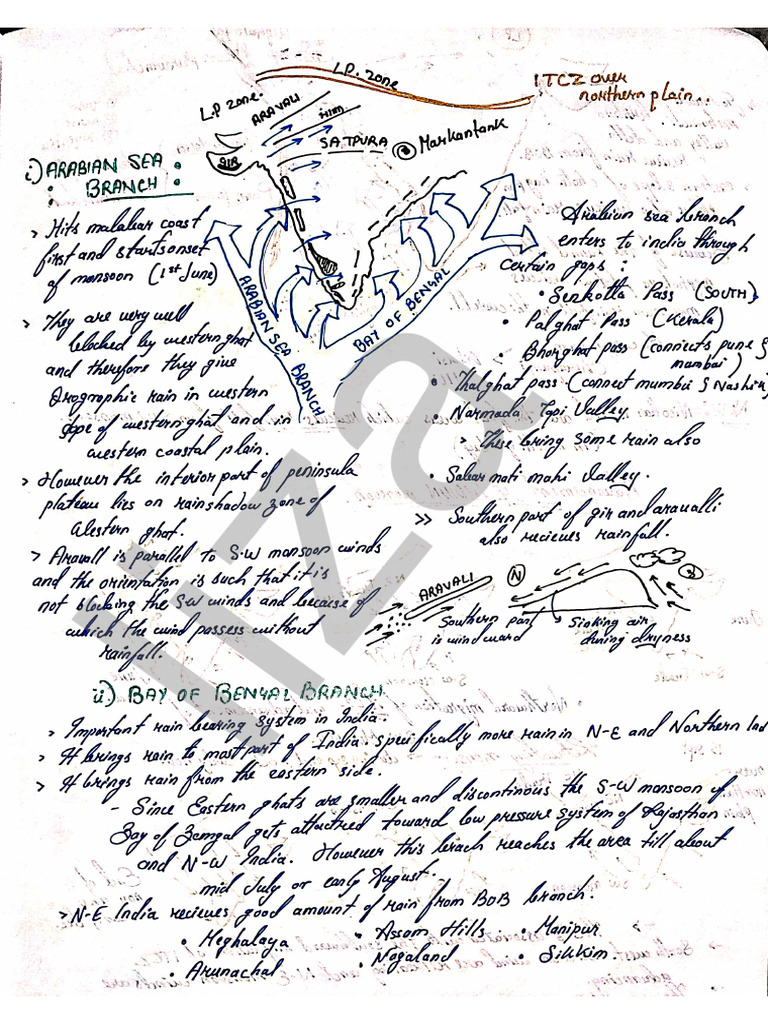 L.P. zone
ITCZ over
northern plain..
L.P zone.
ARAVALI
SATPURA
Markantank
GIR
i) ARABIAN SEA
BRANCH
ARABIAN SEA BRANCH
BAY OF BENGAL
> Hits malabar coast
first and starts onset
of monsoon (1st June)
> They are very well
blocked by western ghat
and therefore they give
Orographic rain in western
slope of western ghat and in
western coastal plain.
> However the interior part of peninsula
plateau lies on rainshadow zone of
Western ghat.
> Aravall is parallel to S-W monsoon winds
and the orientation is such that it is
not blocking the SW winds and because of
which the wind possess without
rainfall.
Arabian sea branch
enters to india through
certain gaps :
• Senkotta Pass (SOUTH)
• Palghat Pass (Kerala)
• Bhorghat pass (connects pune &
mumbai)
• Thalghat pass (connect mumbai & Nashik)
• Narmada Tapi Valley.
> These bring some rain also
• Sabarmati mahi Valley.
>> Southern part of gir and aravalli
also recieves rainfall.
ARAVALI
Southern part
is windward
N
Sinking air
during dryness
ii) BAY OF BENGAL BRANCH
> Important rain bearing system in India.
> It brings rain to most part of India. specifically more rain in N-E and Northern Ind
> It brings rain from the eastern side.
- Since Eastern ghats are smaller and discontinous the S-W monsoon of
Bay of Bengal gets attactred toward low pressure system of Rajasthan
and N-W India. However this brach reaches the area till about
mid July or early August.
> N-E India recieves good amount of rain from BoB branch.
• Meghalaya • Assam Hills • Manipur
• Arunachal • Nagaland • Sikkim.
iiza